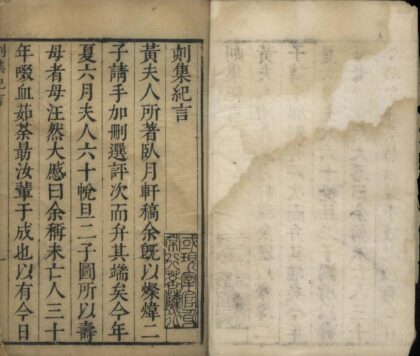 刻集紀言
黃夫人所著臥月軒稿余旣以燦煒二
子請手加刪選評次而弁其端矣今年
夏六月夫人六十帨旦二子圖所以壽
母者母汪然大慼曰余稱未亡人三十
年啜血茹荼勗汝輩于成也以有今日
刻集紀言